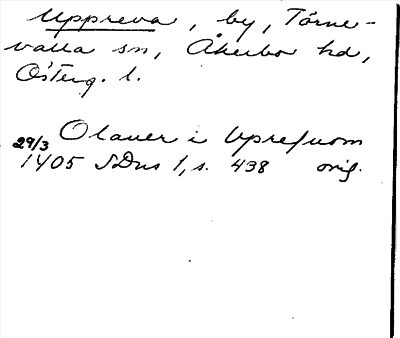 Uppreva, by, Törne-
valla sn, Åkerbo hd,
Österg. l.
Olauer i Vprefuom
29/3 1405 SDns 1, s. 438 orig.